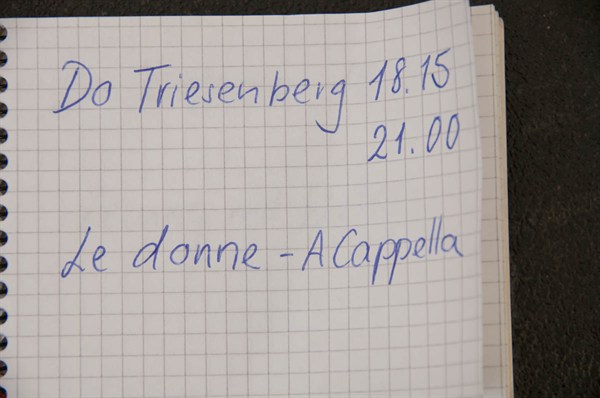 Do Triesenberg 18.15
21.00
Le donne - A Cappella